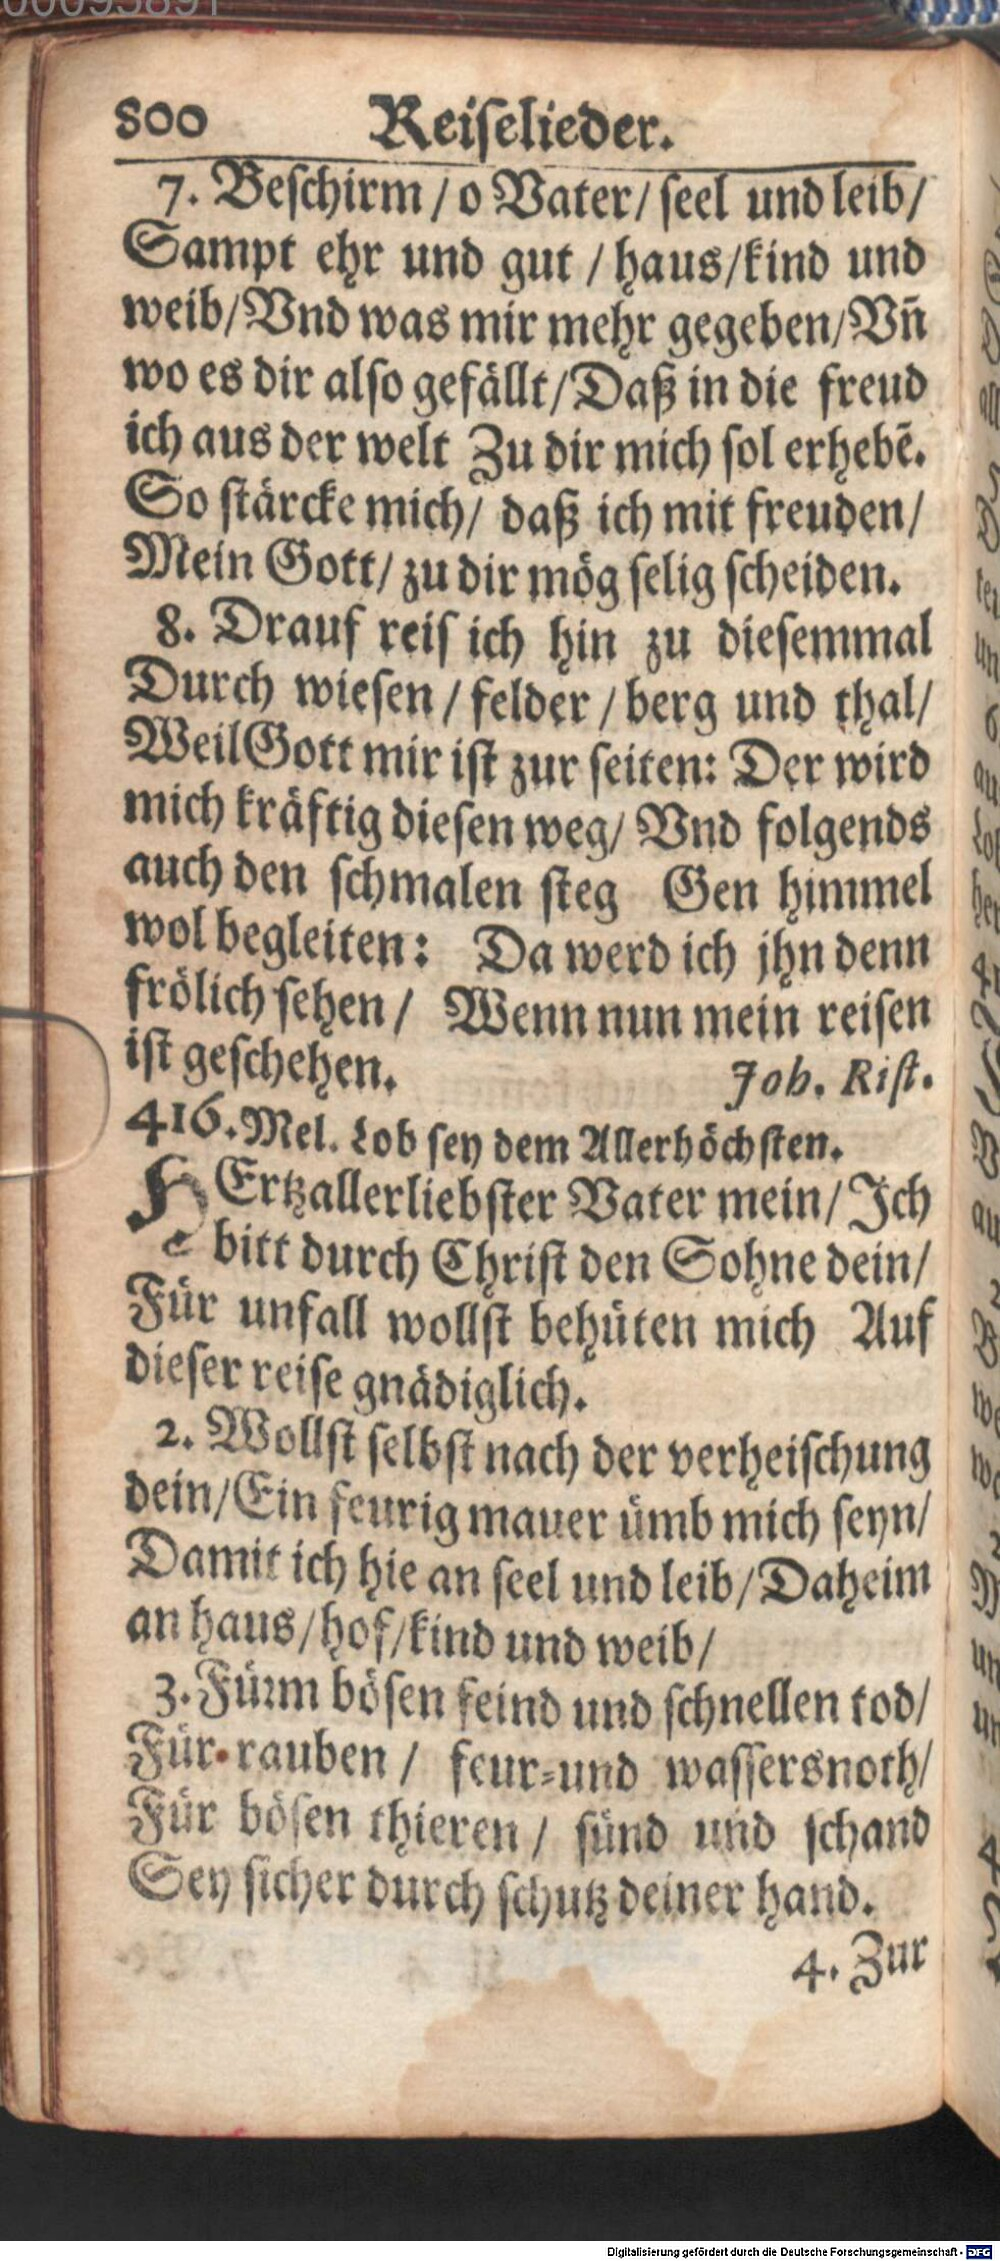 00095891
800 Reiselieder.
7. Beschirm / o Vater / seel und leib /
Sampt ehr und gut / haus / kind und
weib / Vnd was mir mehr gegeben / Vñ
wo es dir also gefällt / Daß in die freud
ich aus der welt Zu dir mich sol erhebē.
So stärcke mich / daß ich mit freuden /
Mein Gott / zu dir mög selig scheiden.
8. Drauf reis ich hin zu diesemmal
Durch wiesen / felder / berg und thal /
Weil Gott mir ist zur seiten: Der wird
mich kräftig diesen weg / Vnd folgends
auch den schmalen steg Gen himmel
wol begleiten: Da werd ich jhn denn
frölich sehen / Wenn nun mein reisen
ist geschehen. Joh. Rist.
416. Mel. Lob sey dem Allerhöchsten.
HErtzallerliebster Vater mein / Ich
bitt durch Christ den Sohne dein /
Für unfall wollst behüten mich Auf
dieser reise gnädiglich.
2. Wollst selbst nach der verheischung
dein / Ein feurig mauer ümb mich seyn /
Damit ich hie an seel und leib / Daheim
an haus / hof / kind und weib /
3. Fürm bösen feind und schnellen tod /
Für rauben / feur- und wassersnoth /
Für bösen thieren / sünd und schand
Sey sicher durch schutz deiner hand.
4. Zur
Digitalisierung gefördert durch die Deutsche Forschungsgemeinschaft - DFG